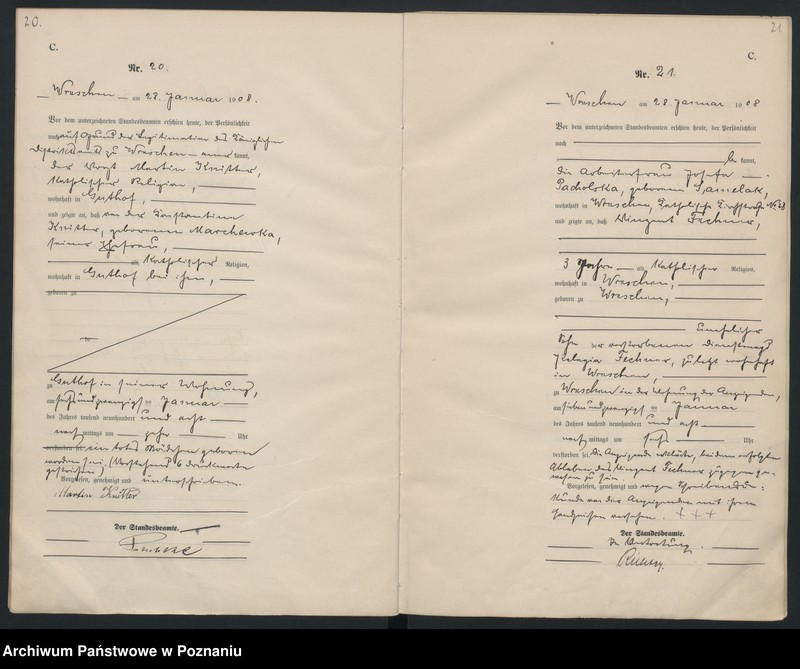 20.
C.
Nr. 20.
Wreschen am 28. Januar 1908.
Vor dem unterzeichneten Standesbeamten erschien heute, der Persönlichkeit
nach auf Grund der Legitimation des Königlichen
Distriktsamts zu Wreschen anerkannt,
der Vogt Martin Knitter,
katholischer Religion,
wohnhaft in Guthof,
und zeigte an, daß von der Konstantina
Knitter, geborenen Marchewka,
seiner Ehefrau,
katholischer Religion,
wohnhaft in Guthof bei ihm,
geboren zu
zu Guthof in seiner Wohnung,
am sechsundzwanzigsten Januar
des Jahres tausend neunhundert und acht
nachmittags um Uhr
verstorben sei ein totes Mädchen geboren
worden sei. (Vorstehend 6 Druckworte
gestrichen)
Vorgelesen, genehmigt und unterschrieben.
Martin Knitter
Der Standesbeamte.
21
C.
Nr. 21.
Wreschen am 28. Januar 1908
Vor dem unterzeichneten Standesbeamten erschien heute, der Persönlichkeit
nach
be kannt,
die Arbeiterfrau Josefa
Pacholska, geborene Samelak,
wohnhaft in Wreschen, katholische Kirchstraße
und zeigte an, daß Vinzent Fechner,
3 Jahre alt, katholischer Religion,
wohnhaft in Wreschen,
geboren zu Wreschen,
unehelicher
Sohn der verstorbenen Dienstmagd
Pelagia Fechner, zuletzt wohnhaft
in Wreschen,
zu Wreschen in der Wohnung der Anzeigenden,
am siebenundzwanzigsten Januar
des Jahres tausend neunhundert und acht
nachmittags um sechs Uhr
verstorben sei. Die Anzeigende erklärte, bei dem erfolgten
Ableben des Vinzent Fechner zugegen ge-
wesen zu sein.
Vorgelesen, genehmigt und wegen Schreibensun-
kunde von der Anzeigenden mit ihren
Handzeichen versehen. + + +
Der Standesbeamte.
In Vertretung.
Archiwum Państwowe w Poznaniu